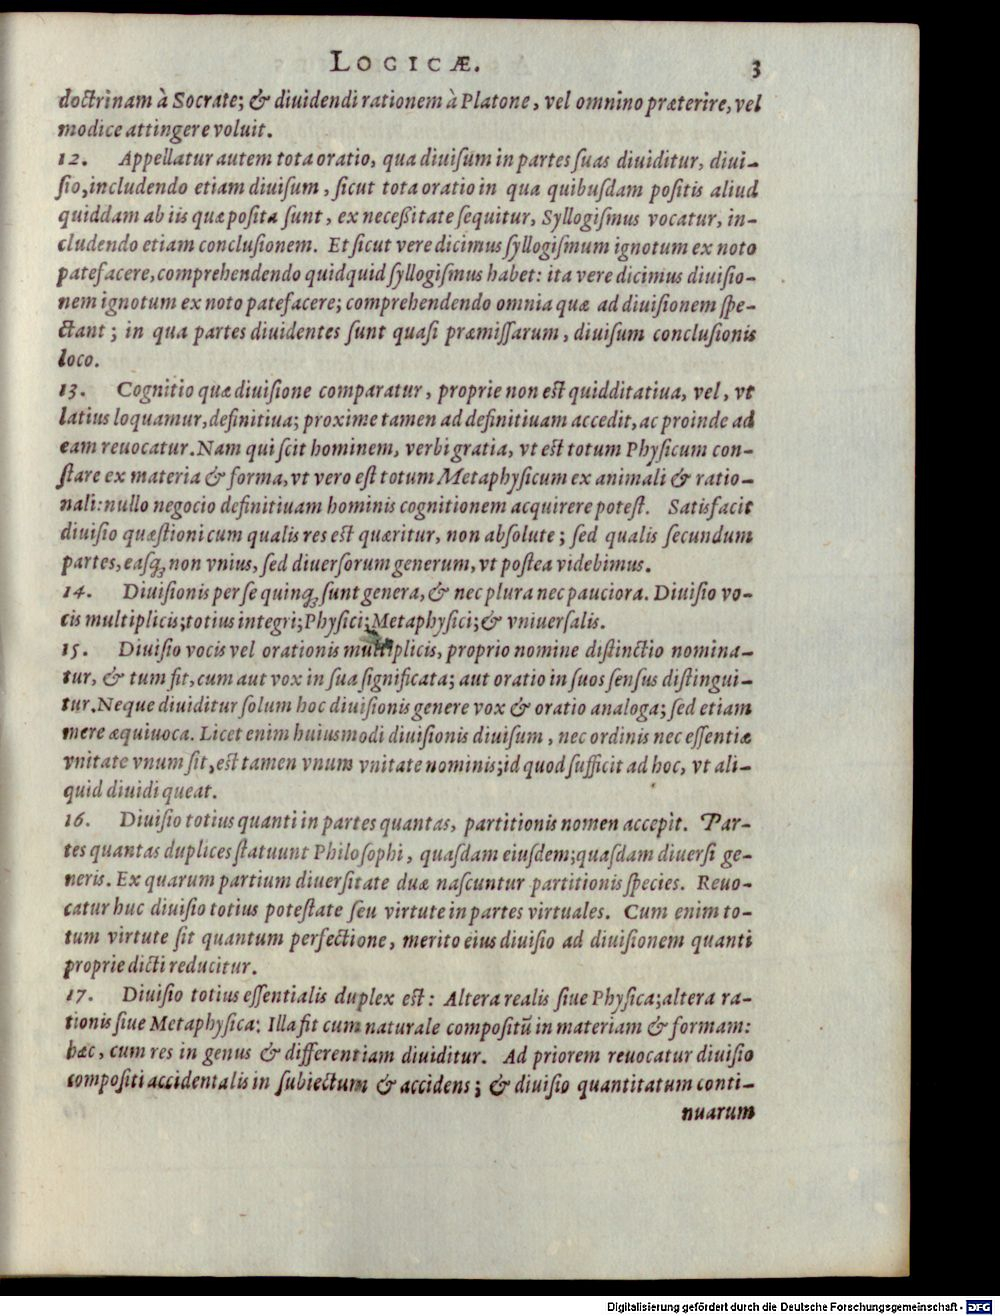 LOGICÆ. 3
doctrinam à Socrate; & diuidendi rationem à Platone, vel omnino præterire, vel
modice attingere voluit.
12. Appellatur autem tota oratio, qua diuiſum in partes ſuas diuiditur, diui-
ſio, includendo etiam diuiſum, ſicut tota oratio in qua quibuſdam poſitis aliud
quiddam ab iis quæ poſita ſunt, ex neceßitate ſequitur, Syllogiſmus vocatur, in-
cludendo etiam concluſionem. Et ſicut vere dicimus ſyllogiſmum ignotum ex noto
patefacere, comprehendendo quidquid ſyllogiſmus habet: ita vere dicimus diuiſio-
nem ignotum ex noto patefacere; comprehendendo omnia quæ ad diuiſionem ſpe-
ctant; in qua partes diuidentes ſunt quaſi præmiſſarum, diuiſum concluſionis
loco.
13. Cognitio quæ diuiſione comparatur, proprie non eſt quidditatiua, vel, vt
latius loquamur, definitiua; proxime tamen ad definitiuam accedit, ac proinde ad
eam reuocatur. Nam qui ſcit hominem, verbi gratia, vt eſt totum Phyſicum con-
ſtare ex materia & forma, vt vero eſt totum Metaphyſicum ex animali & ratio-
nali: nullo negocio definitiuam hominis cognitionem acquirere poteſt. Satisfacit
diuiſio quæſtioni cum qualis res eſt quæritur, non abſolute; ſed qualis ſecundum
partes, eaſq; non vnius, ſed diuerſorum generum, vt poſtea videbimus.
14. Diuiſionis per ſe quinq; ſunt genera, & nec plura nec pauciora. Diuiſio vo-
cis multiplicis; totius integri; Phyſici; Metaphyſici; & vniuerſalis.
15. Diuiſio vocis vel orationis multiplicis, proprio nomine diſtinctio nomina-
tur, & tum fit, cum aut vox in ſua ſignificata; aut oratio in ſuos ſenſus diſtingui-
tur. Neque diuiditur ſolum hoc diuiſionis genere vox & oratio analoga; ſed etiam
mere æquiuoca. Licet enim huiusmodi diuiſionis diuiſum, nec ordinis nec eſſentiæ
vnitate vnum ſit, eſt tamen vnum vnitate nominis; id quod ſufficit ad hoc, vt ali-
quid diuidi queat.
16. Diuiſio totius quanti in partes quantas, partitionis nomen accepit. Par-
tes quantas duplices ſtatuunt Philoſophi, quaſdam eiuſdem; quaſdam diuerſi ge-
neris. Ex quarum partium diuerſitate duæ naſcuntur partitionis ſpecies. Reuo-
catur huc diuiſio totius poteſtate ſeu virtute in partes virtuales. Cum enim to-
tum virtute ſit quantum perfectione, merito eius diuiſio ad diuiſionem quanti
proprie dicti reducitur.
17. Diuiſio totius eſſentialis duplex eſt: Altera realis ſiue Phyſica; altera ra-
tionis ſiue Metaphyſica: Illa fit cum naturale compoſitũ in materiam & formam:
hæc, cum res in genus & differentiam diuiditur. Ad priorem reuocatur diuiſio
compoſiti accidentalis in ſubiectum & accidens; & diuiſio quantitatum conti-
nuarum
Digitalisierung gefördert durch die Deutsche Forschungsgemeinschaft - DFG